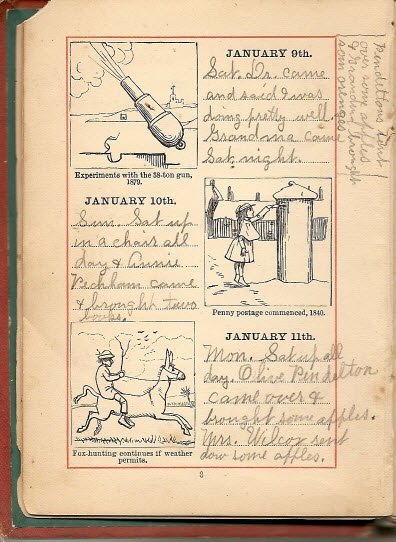 JANUARY 9th.
Sat. Dr. came
and said I was
doing pretty well.
Grandma came
Sat. night.
Pendeltons sent
over some apples
& Grandma brought
som oranges
Experiments with the 38-ton gun,
1879.
JANUARY 10th.
Sun. Sat up
in a chair all
day & Annie
Peckham came
& brought two
books.
Penny postage commenced, 1840.
JANUARY 11th.
Mon. Sat up all
day. Olive Pindelton
came over &
brought some apples.
Mrs. Wilcox sent
dow some apples.
Fox-hunting continues if weather
permits.
3